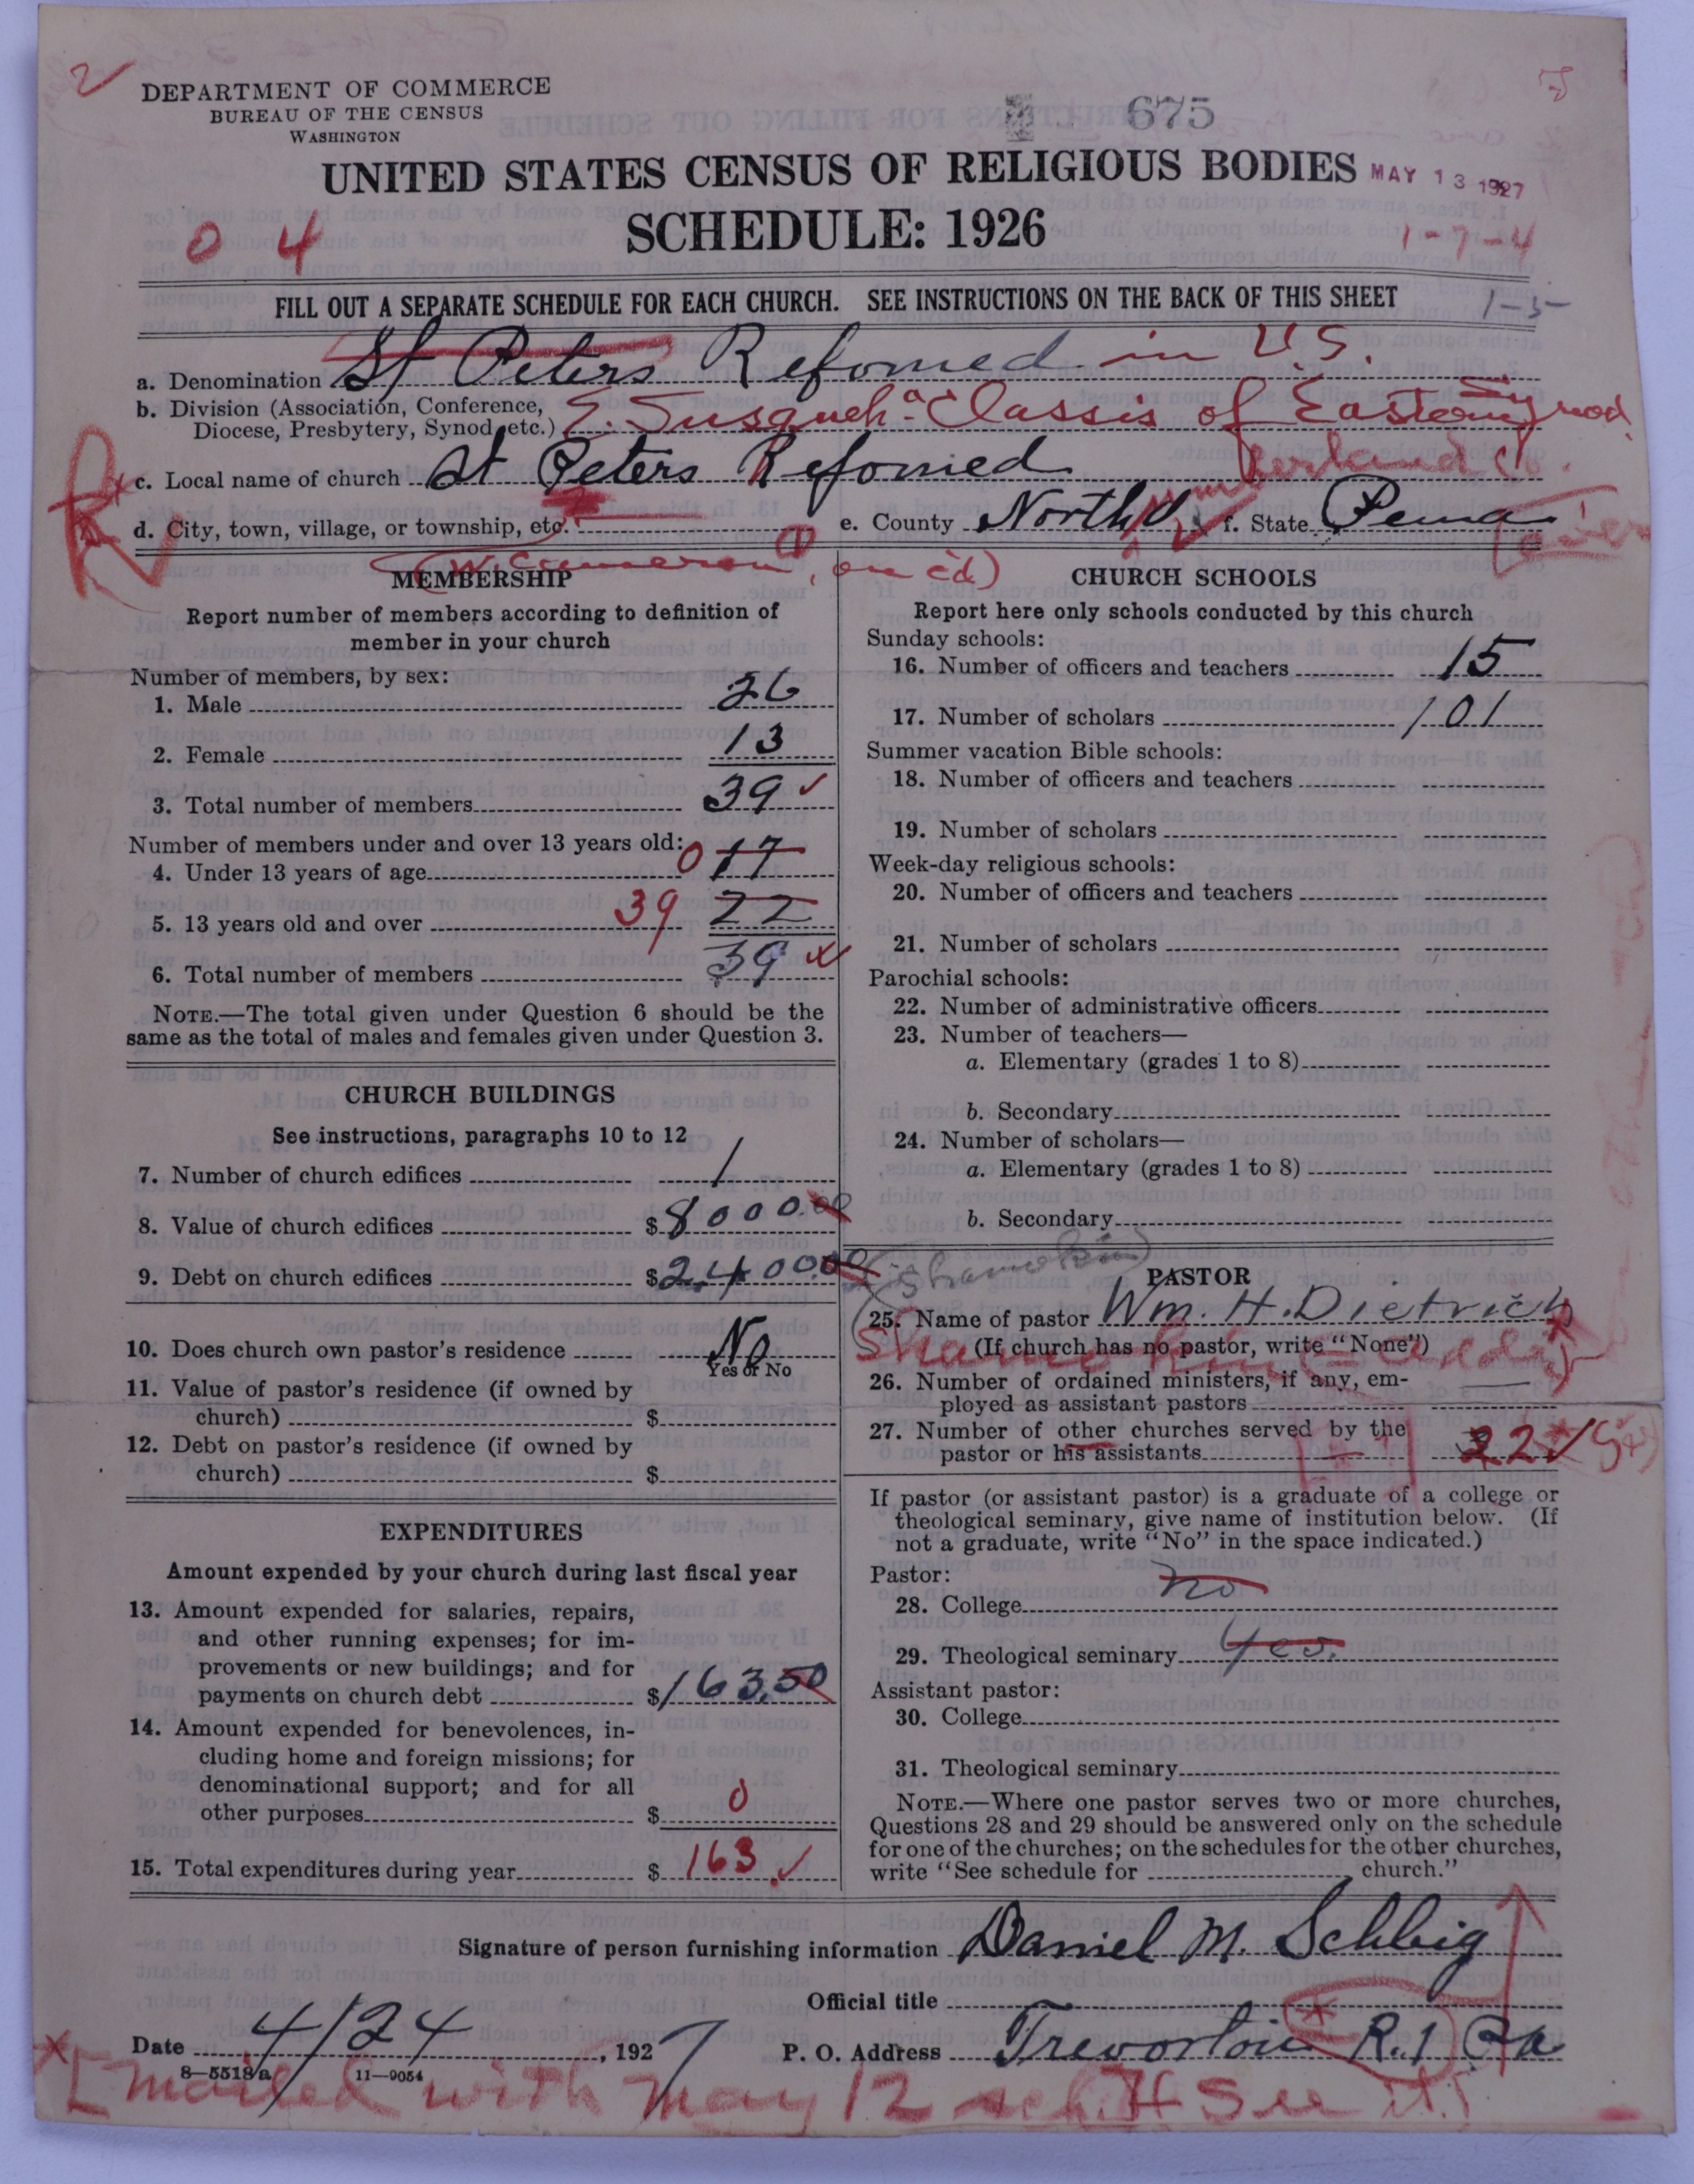 2
DEPARTMENT OF COMMERCE
BUREAU OF THE CENSUS
WASHINGTON
675
UNITED STATES CENSUS OF RELIGIOUS BODIES
MAY 13 1927
SCHEDULE: 1926
0 4
1-7-4
FILL OUT A SEPARATE SCHEDULE FOR EACH CHURCH. SEE INSTRUCTIONS ON THE BACK OF THIS SHEET
1-5-
a. Denomination St Peters Refomed in U.S.
b. Division (Association, Conference, Diocese, Presbytery, Synod, etc.) E. Susqueh.a Classis of Eastern Synod
c. Local name of church St Peters Refomed
d. City, town, village, or township, etc.
e. County North'd
umberland Co.
f. State Penna
(W. Cameron, on c'd)
MEMBERSHIP
Report number of members according to definition of
member in your church
Number of members, by sex:
1. Male 26
2. Female 13
3. Total number of members 39
Number of members under and over 13 years old:
4. Under 13 years of age 0 17
5. 13 years old and over 39 22
6. Total number of members 39
NOTE.—The total given under Question 6 should be the
same as the total of males and females given under Question 3.
CHURCH BUILDINGS
See instructions, paragraphs 10 to 12
7. Number of church edifices 1
8. Value of church edifices $8000.00
9. Debt on church edifices $2400.00
10. Does church own pastor's residence No
Yes or No
11. Value of pastor's residence (if owned by
church) $
12. Debt on pastor's residence (if owned by
church) $
EXPENDITURES
Amount expended by your church during last fiscal year
13. Amount expended for salaries, repairs,
and other running expenses; for im-
provements or new buildings; and for
payments on church debt $163.50
14. Amount expended for benevolences, in-
cluding home and foreign missions; for
denominational support; and for all
other purposes $ 0
15. Total expenditures during year $ 163
CHURCH SCHOOLS
Report here only schools conducted by this church
Sunday schools:
16. Number of officers and teachers 15
17. Number of scholars 101
Summer vacation Bible schools:
18. Number of officers and teachers
19. Number of scholars
Week-day religious schools:
20. Number of officers and teachers
21. Number of scholars
Parochial schools:
22. Number of administrative officers
23. Number of teachers—
a. Elementary (grades 1 to 8)
b. Secondary
24. Number of scholars—
a. Elementary (grades 1 to 8)
b. Secondary
(Shamokin)
PASTOR
25. Name of pastor Wm. H. Dietrich
(If church has no pastor, write "None")
26. Number of ordained ministers, if any, em-
ployed as assistant pastors
27. Number of other churches served by the
pastor or his assistants
If pastor (or assistant pastor) is a graduate of a college or
theological seminary, give name of institution below. (If
not a graduate, write "No" in the space indicated.)
Pastor:
28. College no
29. Theological seminary yes.
Assistant pastor:
30. College
31. Theological seminary
NOTE.—Where one pastor serves two or more churches,
Questions 28 and 29 should be answered only on the schedule
for one of the churches; on the schedules for the other churches,
write "See schedule for church."
Signature of person furnishing information Daniel M. Schlbig
Official title
Date 4/24, 1927
P. O. Address Trevorton R.1 Pa
8—5518a 11—9054
[mailed with May 12 sch. See it.]